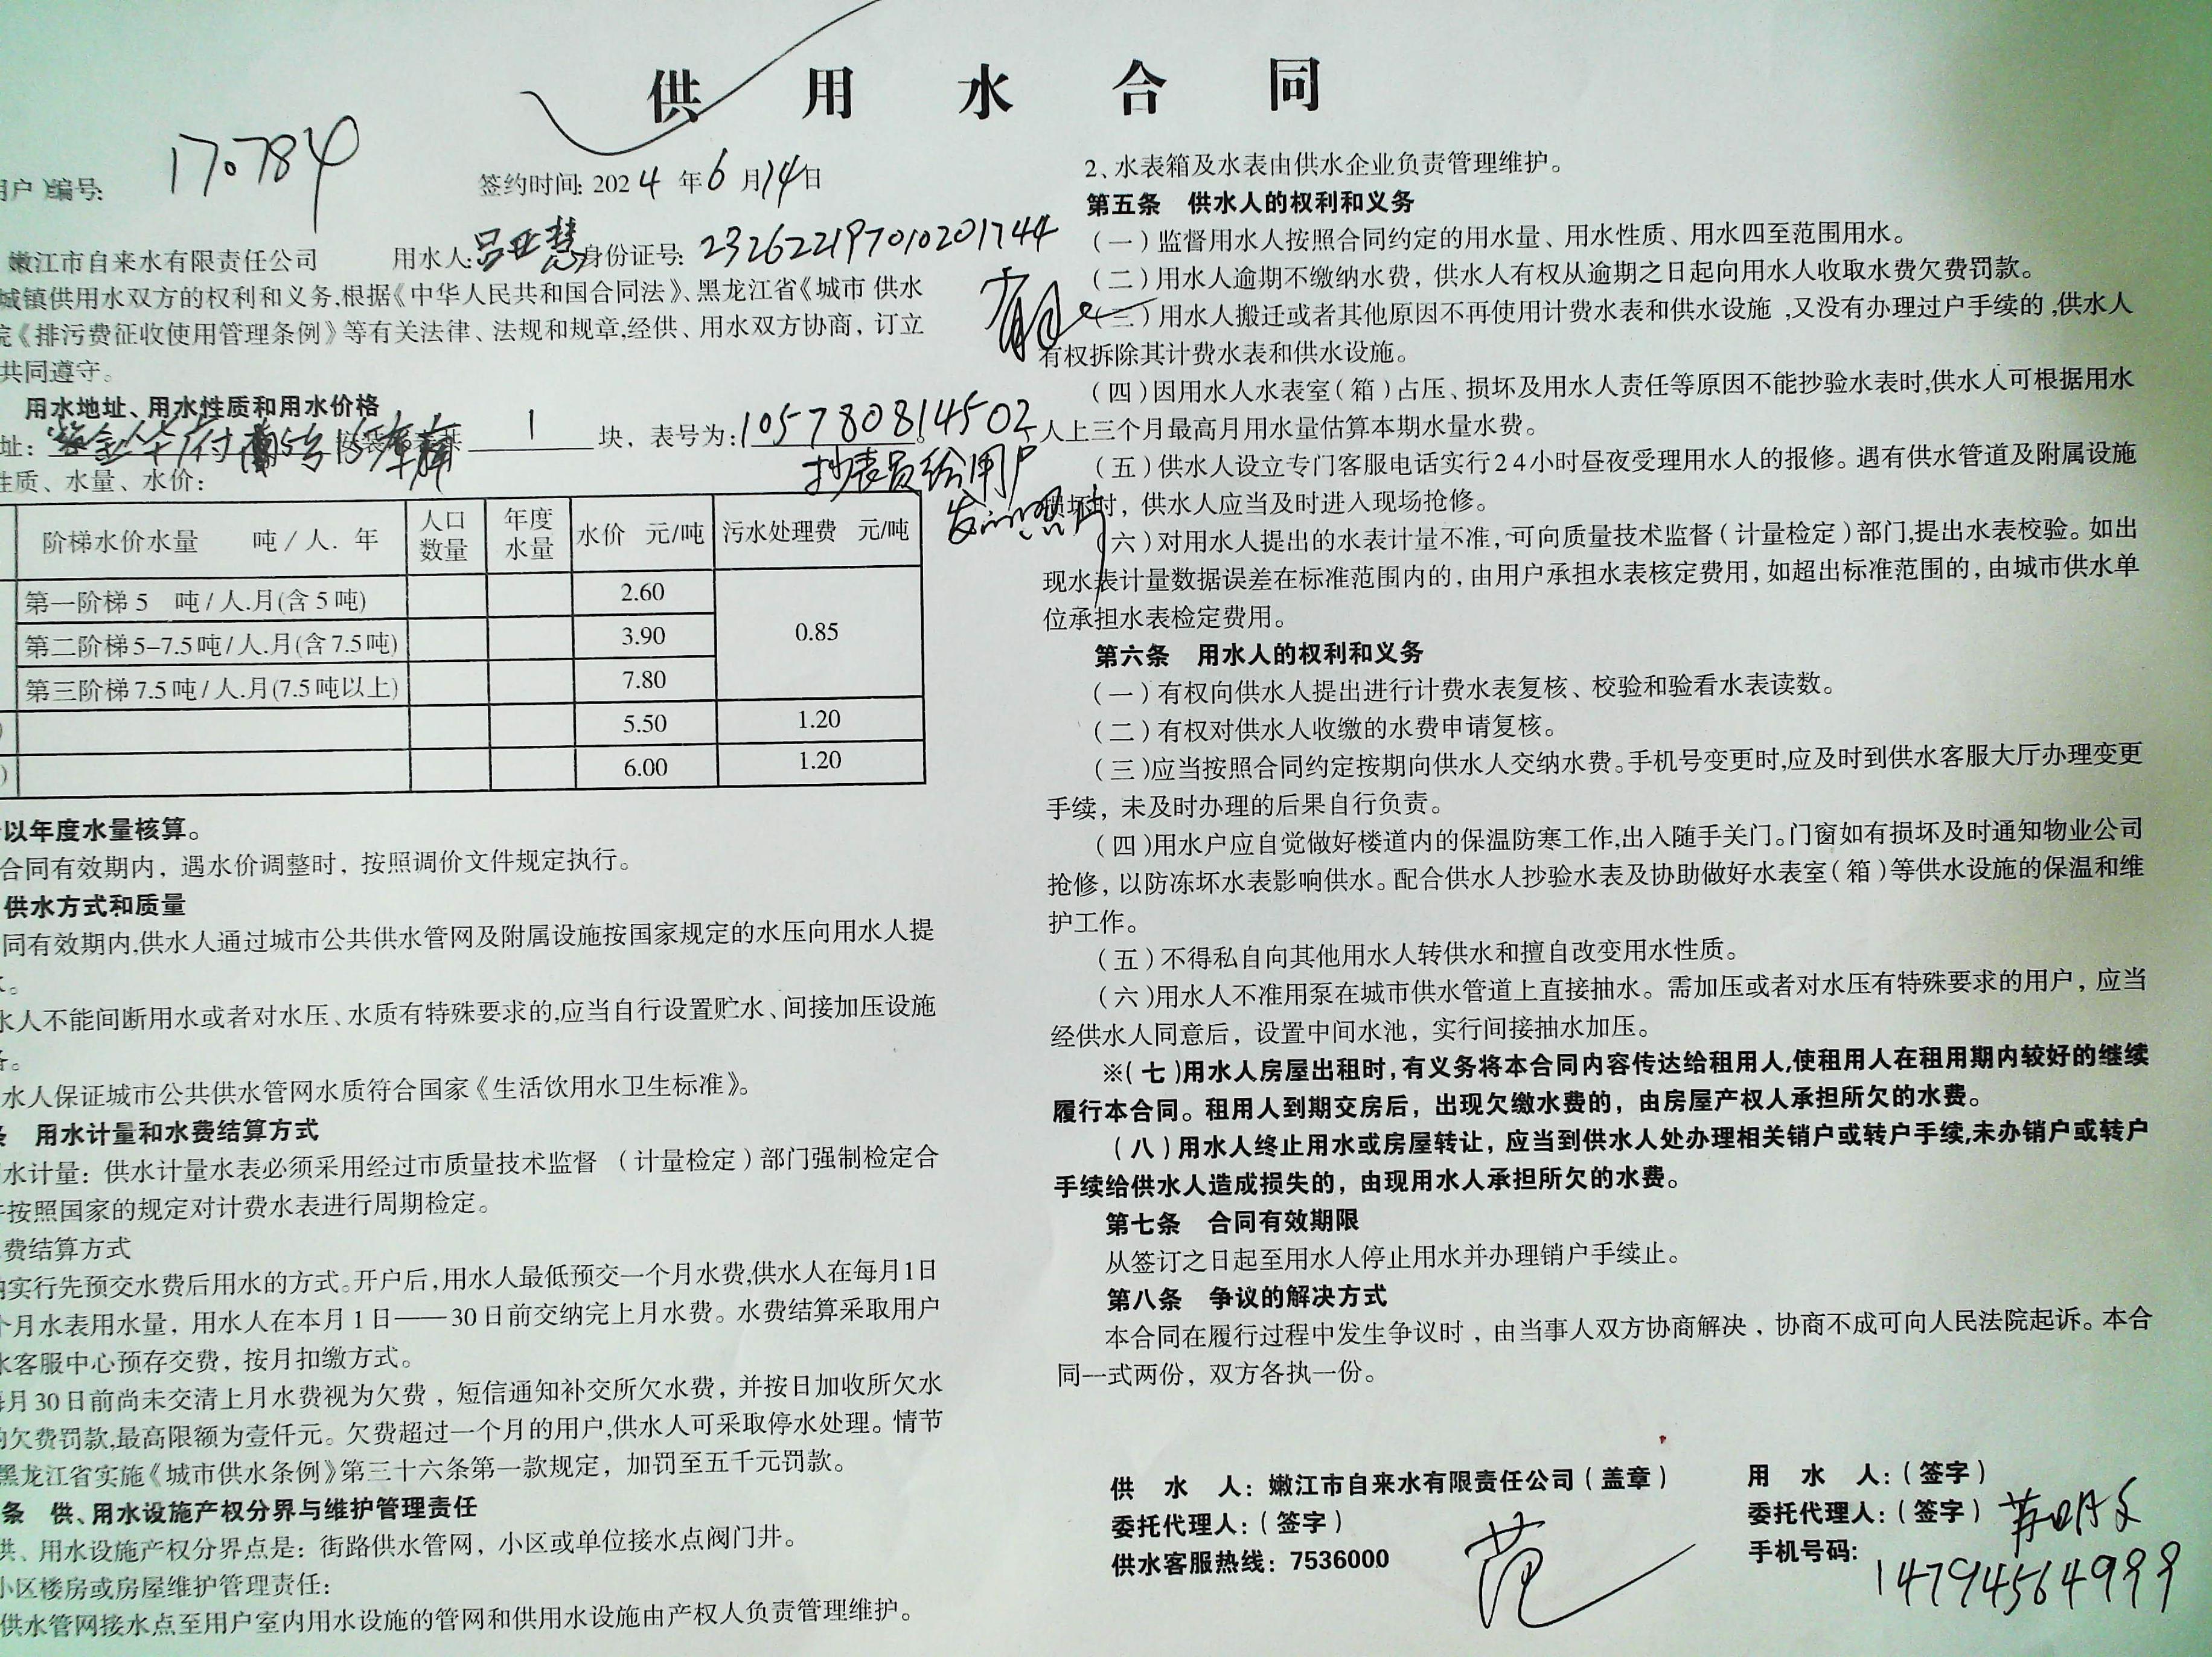 供用水合同
用户)编号: 170784
签约时间: 2024年6月14日
嫩江市自来水有限责任公司 用水人: 吕亚慧 身份证号: 232622197010201744
城镇供用水双方的权利和义务,根据《中华人民共和国合同法》、黑龙江省《城市 供水
院《排污费征收使用管理条例》等有关法律、法规和规章,经供、用水双方协商，订立
共同遵守。
用水地址、用水性质和用水价格
址: 1 块，表号为: 105780814502
抄表员给用户
发的照片
性质、水量、水价:
阶梯水价水量 吨/人.年 人口数量 年度水量 水价 元/吨 污水处理费 元/吨
第一阶梯 5 吨/人.月(含5吨) 2.60 0.85
第二阶梯 5-7.5吨/人.月(含7.5吨) 3.90
第三阶梯 7.5吨/人.月(7.5吨以上) 7.80
) 5.50 1.20
) 6.00 1.20
以年度水量核算。
合同有效期内，遇水价调整时，按照调价文件规定执行。
供水方式和质量
同有效期内,供水人通过城市公共供水管网及附属设施按国家规定的水压向用水人提
水。
水人不能间断用水或者对水压、水质有特殊要求的,应当自行设置贮水、间接加压设施
备。
水人保证城市公共供水管网水质符合国家《生活饮用水卫生标准》。
条 用水计量和水费结算方式
水计量：供水计量水表必须采用经过市质量技术监督（计量检定）部门强制检定合
并按照国家的规定对计费水表进行周期检定。
费结算方式
纳实行先预交水费后用水的方式。开户后,用水人最低预交一个月水费,供水人在每月1日
个月水表用水量，用水人在本月1日——30日前交纳完上月水费。水费结算采取用户
水客服中心预存交费，按月扣缴方式。
每月30日前尚未交清上月水费视为欠费，短信通知补交所欠水费，并按日加收所欠水
的欠费罚款,最高限额为壹仟元。欠费超过一个月的用户,供水人可采取停水处理。情节
黑龙江省实施《城市供水条例》第三十六条第一款规定，加罚至五千元罚款。
条 供、用水设施产权分界与维护管理责任
供、用水设施产权分界点是：街路供水管网，小区或单位接水点阀门井。
小区楼房或房屋维护管理责任:
供水管网接水点至用户室内用水设施的管网和供用水设施由产权人负责管理维护。
2、水表箱及水表由供水企业负责管理维护。
第五条 供水人的权利和义务
(一)监督用水人按照合同约定的用水量、用水性质、用水四至范围用水。
(二)用水人逾期不缴纳水费，供水人有权从逾期之日起向用水人收取水费欠费罚款。
(三)用水人搬迁或者其他原因不再使用计费水表和供水设施,又没有办理过户手续的,供水人
有权拆除其计费水表和供水设施。
(四)因用水人水表室(箱)占压、损坏及用水人责任等原因不能抄验水表时,供水人可根据用水
人上三个月最高月用水量估算本期水量水费。
(五)供水人设立专门客服电话实行24小时昼夜受理用水人的报修。遇有供水管道及附属设施
损坏时，供水人应当及时进入现场抢修。
(六)对用水人提出的水表计量不准,可向质量技术监督(计量检定)部门,提出水表校验。如出
现水表计量数据误差在标准范围内的，由用户承担水表核定费用，如超出标准范围的，由城市供水单
位承担水表检定费用。
第六条 用水人的权利和义务
(一)有权向供水人提出进行计费水表复核、校验和验看水表读数。
(二)有权对供水人收缴的水费申请复核。
(三)应当按照合同约定按期向供水人交纳水费。手机号变更时,应及时到供水客服大厅办理变更
手续，未及时办理的后果自行负责。
(四)用水户应自觉做好楼道内的保温防寒工作,出入随手关门。门窗如有损坏及时通知物业公司
抢修，以防冻坏水表影响供水。配合供水人抄验水表及协助做好水表室(箱)等供水设施的保温和维
护工作。
(五)不得私自向其他用水人转供水和擅自改变用水性质。
(六)用水人不准用泵在城市供水管道上直接抽水。需加压或者对水压有特殊要求的用户，应当
经供水人同意后，设置中间水池，实行间接抽水加压。
※(七)用水人房屋出租时,有义务将本合同内容传达给租用人,使租用人在租用期内较好的继续
履行本合同。租用人到期交房后，出现欠缴水费的，由房屋产权人承担所欠的水费。
(八)用水人终止用水或房屋转让，应当到供水人处办理相关销户或转户手续,未办销户或转户
手续给供水人造成损失的，由现用水人承担所欠的水费。
第七条 合同有效期限
从签订之日起至用水人停止用水并办理销户手续止。
第八条 争议的解决方式
本合同在履行过程中发生争议时，由当事人双方协商解决，协商不成可向人民法院起诉。本合
同一式两份，双方各执一份。
供水人：嫩江市自来水有限责任公司(盖章)
委托代理人：(签字) 范
供水客服热线：7536000
用水人：(签字)
委托代理人：(签字)
手机号码: 14794564999